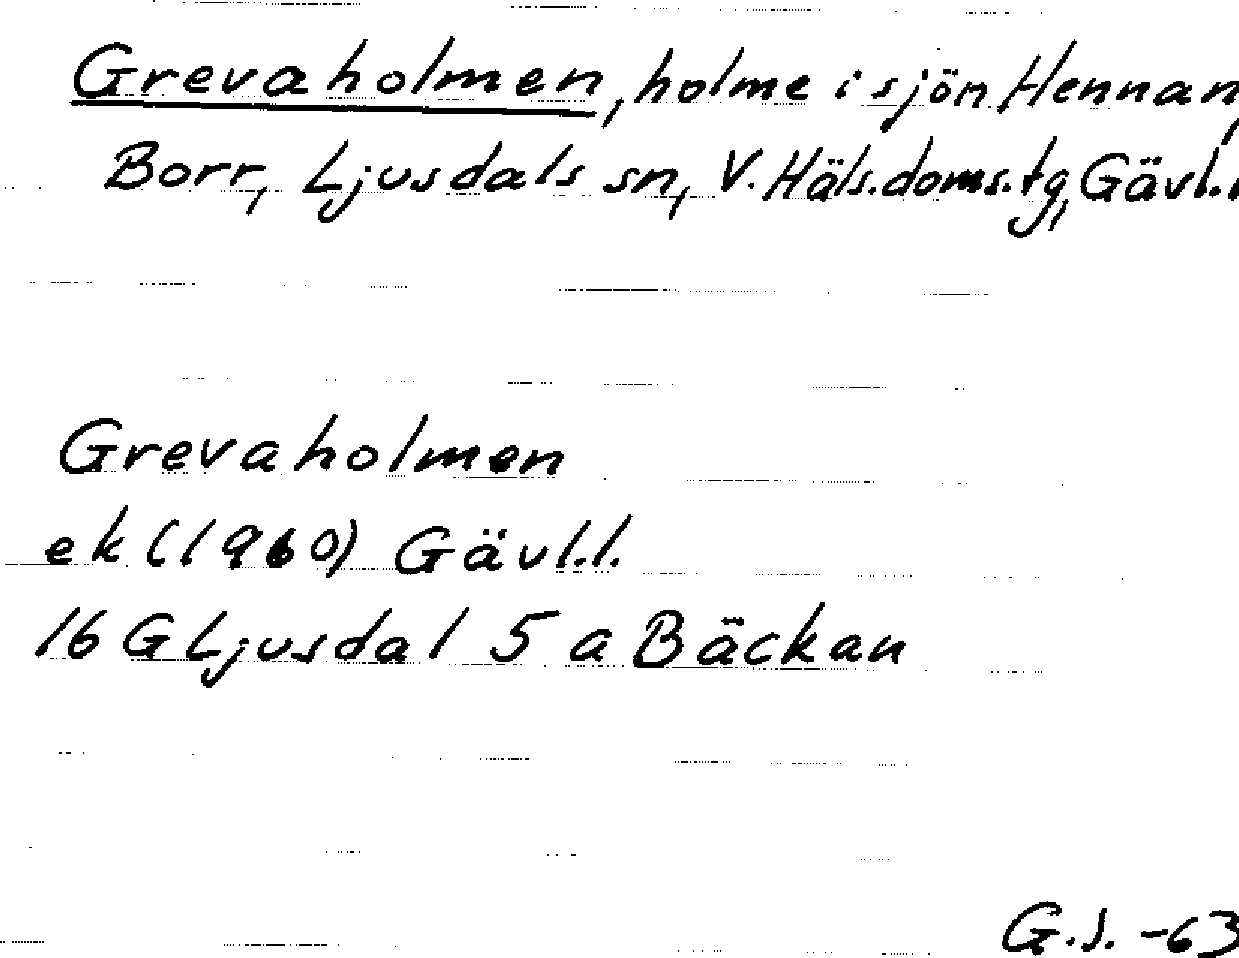 Grevaholmen, holme i sjön Hennan,
Borr, Ljusdals sn, V. Häls.doms.tg, Gävl.l
Grevaholmen
ek (1960) Gävl.l.
16 G Ljusdal 5 a Bäckan
G.J. -63